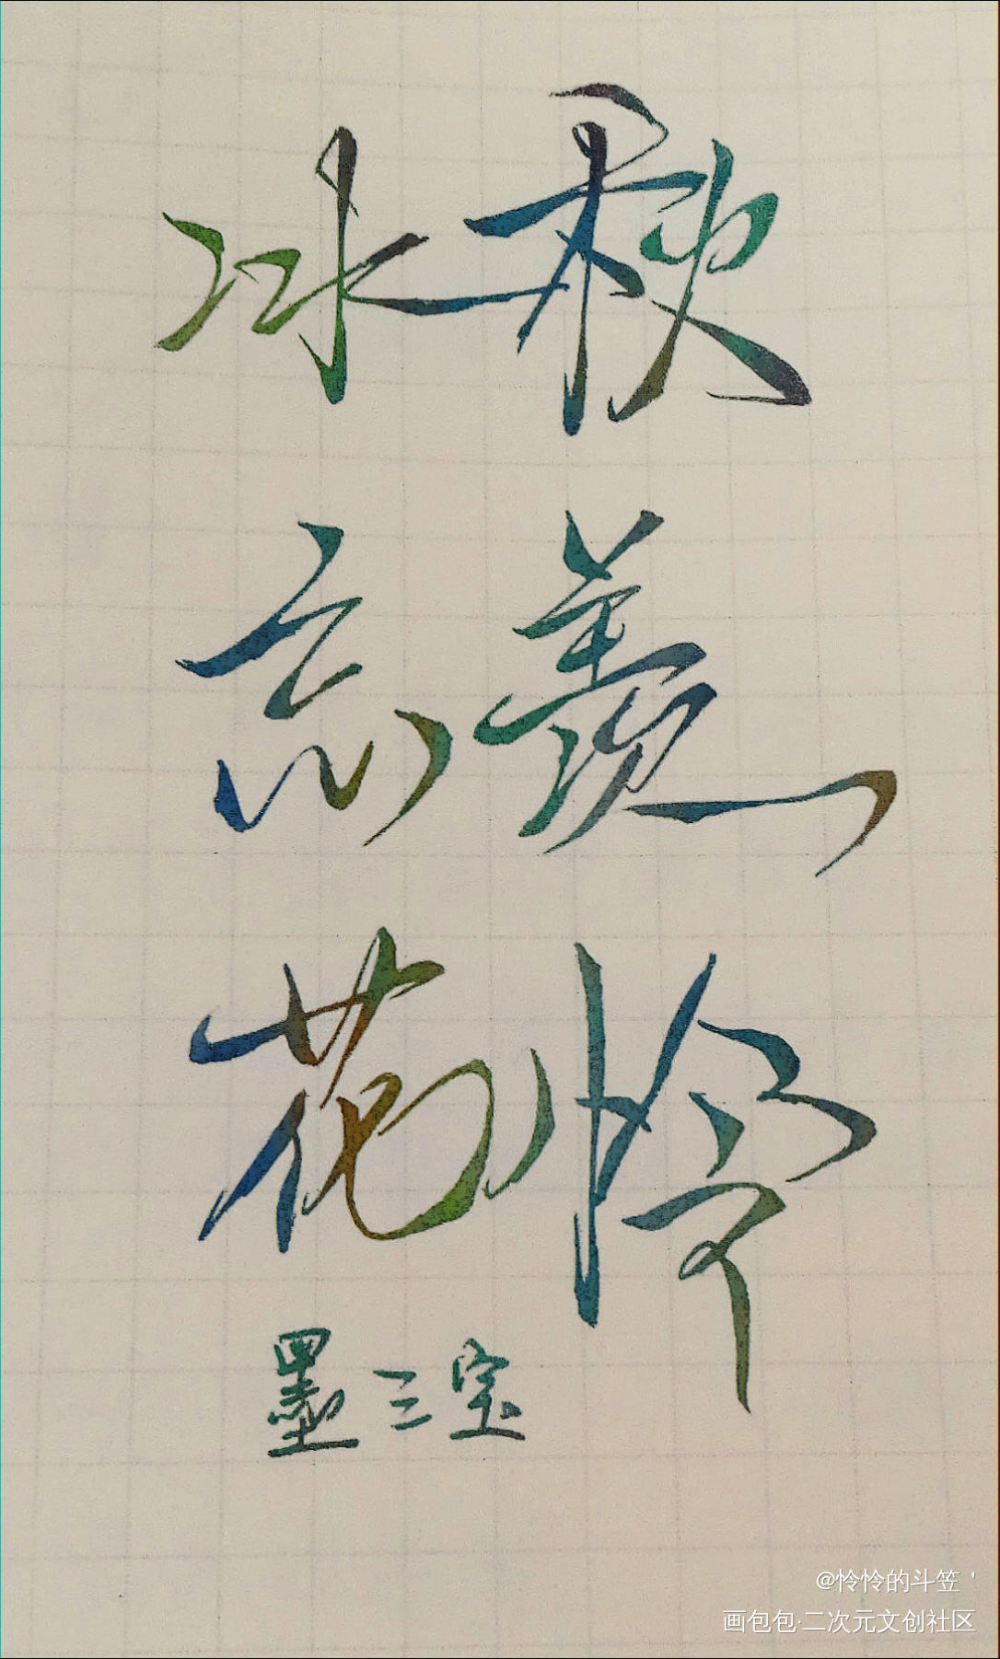 冰秋
忘羡
花怜
墨三宝
@怜怜的斗笠 '
画包包·二次元文创社区